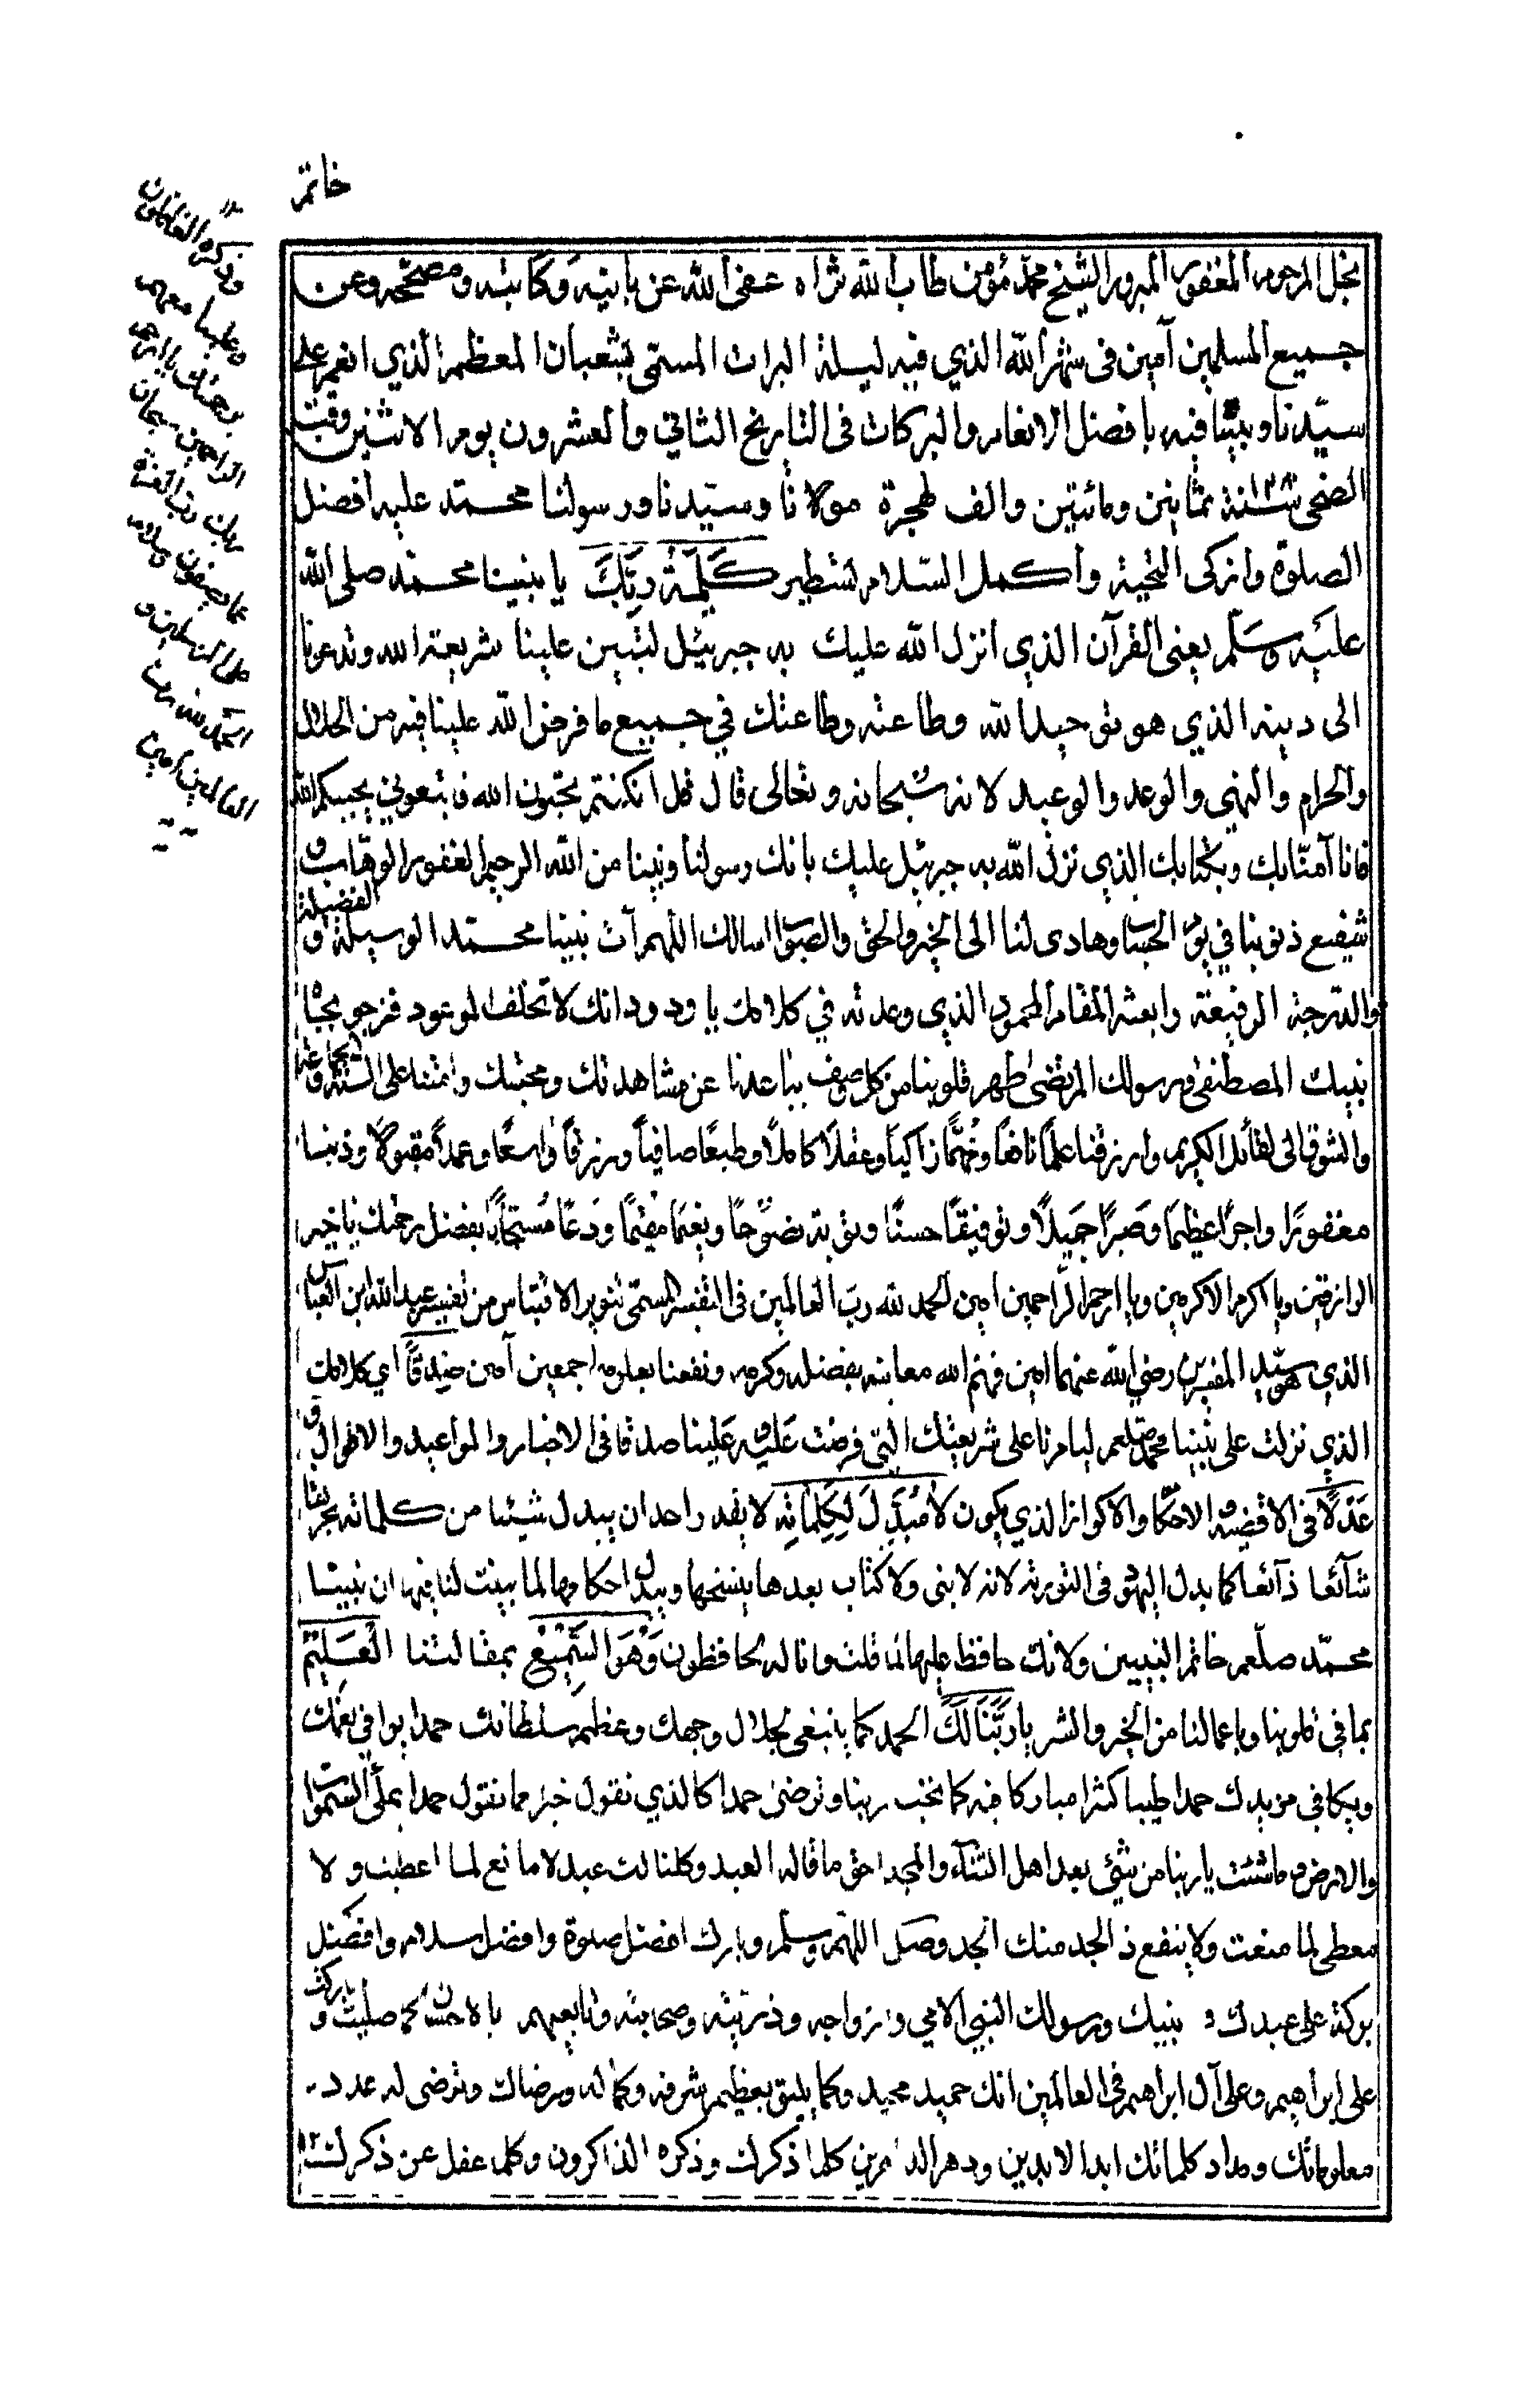 خاتمه
نجل المرحوم المغفور المبرور الشيخ محمد مؤمن طاب الله ثراه عفى الله عن بانيه وكاتبه ومصححه وعن
جميع المسلمين آمين فى شهر الله الذي فيه ليلة البرات المسمى بشعبان المعظم الذي انعم على
سيّدنا ونبيّنا فيه بافضل الانعام والبركات فى التاريخ الثاني والعشرون يوم الاثنين وقت
الضحى سنة ١٢٨٠ ثمانين ومائتين والف لهجرة مولانا وسيّدنا ورسولنا محمّد عليه افضل
الصلوة وازكى التحية واكمل السّلام لتنظير كَلِمَةُ رَبِّكَ يا نبينا محمّد صلى الله
عليه وسلّم يعنى القرآن الذي انزل الله عليك به جبرئيل لتبين علينا شريعة الله وتدعونا
الى دينه الذي هو توحيد الله وطاعته وطاعتك في جميع ما فرض الله علينا فيه من الحلال
والحرام والنهي والوعد والوعيد لانه سبحانه وتعالى قال قل ان كنتم تحبون الله فاتبعوني يحببكم الله
فانا آمنّا بك وبكتابك الذي نزل الله به جبرئيل عليك بانك رسولنا ونبينا من الله الرحيم الغفور الوهاب و
شفيع ذنوبنا في يوم الحساب وهادى لنا الى الخير والحق والصواب اسالك اللهم آت نبينا محمّد الوسيلة و الفضيلة
والدّرجة الرفيعة وابعثه المقام المحمود الذي وعدته في كلامك يا ودود انك لا تخلف الموعود فنرجو بجاه
نبيك المصطفى ورسولك المرتضى طهر قلوبنا من كل وصف يباعدنا عن مشاهدتك ومحبتك وامتنا على السنة و الجماعة
والشوق الى لقائك الكريم وارزقنا علمًا نافعًا وفهمًا زاكيا وعقلًا كاملًا وطبعًا صافيًا ورزقًا واسعًا وعملًا مقبولًا وذنبا
مغفورًا واجرًا عظيمًا وصَبرًا جَميلًا وتوفيقًا حسنًا وتوبة نصُوحًا ونعِيمًا مُقيمًا ودَعًا مُستجَابًا بفضل رحمتك يا خير
الرازقين ويا اكرم الاكرمين ويا ارحم الرّاحمين امين الحمد لله ربّ العالمين فى التفسير المسمى تنوير الاقتباس من تفسير عبد الله ابن العباس
الذي هو سيّد المفسرين رضي الله عنهما امين فهّم الله معانيه بفضله وكرمه ونفعنا بعلومه اجمعين آمين صِدقًا اي كلامك
الذي نزلت على نبينا محمد صلعم ليامرنا على شريعتك التى فرضت عليه وعَلينا صدقا فى الاخبار والمواعيد والاقوال و
عَدْلًا فى الاقضية والاحكام والاكوان الذي يكون لَا مُبَدِّلَ لِكَلِمَاتِهِ لا يقدر احد ان يبدل شيئا من كلماته تحريفا
شآئعا ذآئعا كما بدل اليهود فى التورىة لانه لا نبى ولا كتاب بعدها ينسخها ويبدل احكامها لما بينت لنا فيها ان نبيّنا
محمّد صلّعم خاتم النبيين ولانك حافظ عليها لما قلت وانا له لحافظون وَهُوَ السَّمِيعُ بمقالتنا الْعَلِيمُ
بما في قلوبنا وباعمالنا من الخير والشر يا رَبَّنَا لَكَ الحمد كما ينبغى لجلال وجهك وعظيم سلطانك حمدا يوافي نعمك
ويكافي مزيدك حمدا طيبا كثيرا مباركا فيه كما تحب ربنا وترضى حمدا كالذي نقول خيرا مما نقول حمدا بملأ السموات
والارض وما شئت يا ربنا من شئ بعد اهل الثناء والمجد احق ما قاله العبد وكلنا لك عبد لا مانع لما اعطيت و لا
معطى لما منعت ولا ينفع ذ الجد منك الجد وصل اللهم وسلم وبارك افضل صلوة وافضل سلام وافضل
بركة على عبدك و نبيك ورسولك النبي الامي وازواجه وذريته وصحابته وتابعيهم باحسان كما صليت و باركت
على ابراهيم وعلى آل ابراهيم فى العالمين انك حميد مجيد وكما يليق بعظيم شرفه وكماله ورضاك وترضى له عدد
معلوماتك ومداد كلماتك ابدا لابدين ودهر الداهرين كلما ذكرك وذكره الذاكرون وكلما غفل عن ذكرك ١٢
وذكره الغافلون
وعلينا معهم
برحمتك يا ارحم
الراحمين سبحان
ربك رب العزة
عما يصفون وسلام
على المرسلين و
الحمد لله رب
العالمين امين